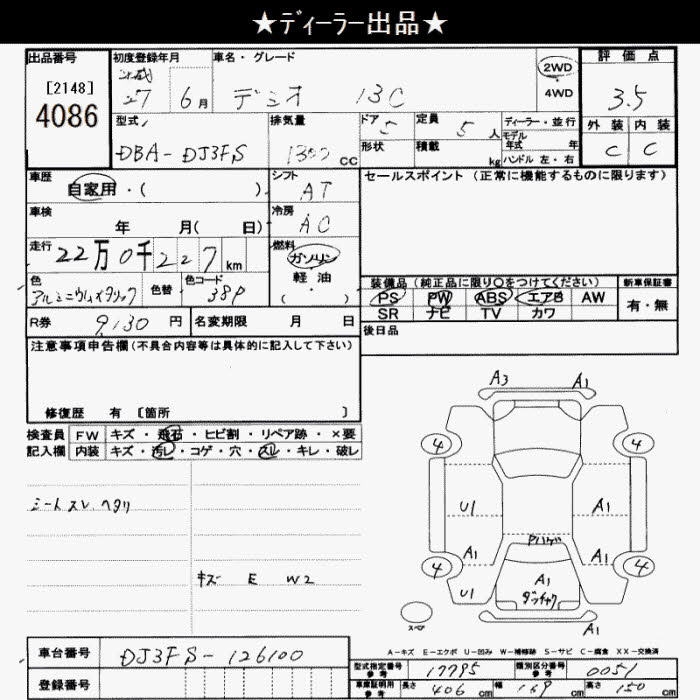 ★ディーラー出品★
出品番号
[2148]
4086
初度登録年月
平成
27 6月
車名・グレード
デミオ 13C
2WD
4WD
評価点
3.5
外装 内装
C C
型式
DBA-DJ3FS
排気量
1300 cc
ドア
5
定員
5 人
形状
積載
kg
ディーラー・並行
モデル
年式 年
ハンドル 左・右
車歴
自家用・( )
シフト
AT
車検
年 月( 日)
冷房
AC
走行
22万0千227km
燃料
ガソリン
軽油
( )
色
アルミニウムメタリック
色替
色コード
38P
R券
9,130 円
名変期限 月 日
セールスポイント(正常に機能するものに限ります)
装備品(純正品に限り○をつけてください)
PS PW ABS エアB AW
SR ナビ TV カワ
新車保証書
有・無
後日品
注意事項申告欄(不具合内容等は具体的に記入して下さい)
修復歴 有 [箇所 ]
検査員
記入欄
FW キズ・飛石・ヒビ割・リペア跡・×要
内装 キズ・汚レ・コゲ・穴・スレ・キレ・破レ
シートスレ ヘタリ
キズ E W2
A3 A1
4 4
U1 A1
Pハゲ
A1 A1
4 4
U1 A1
A1
スペア
A-キズ E-エクボ U-凹み W-補修跡 S-サビ C-腐食 XX-交換済
車台番号
DJ3FS-126100
登録番号
型式指定番号
参考
17795
類別区分番号
参考
0051
車庫証明用
参考
長さ 406 cm 幅 169 cm 高さ 150 cm